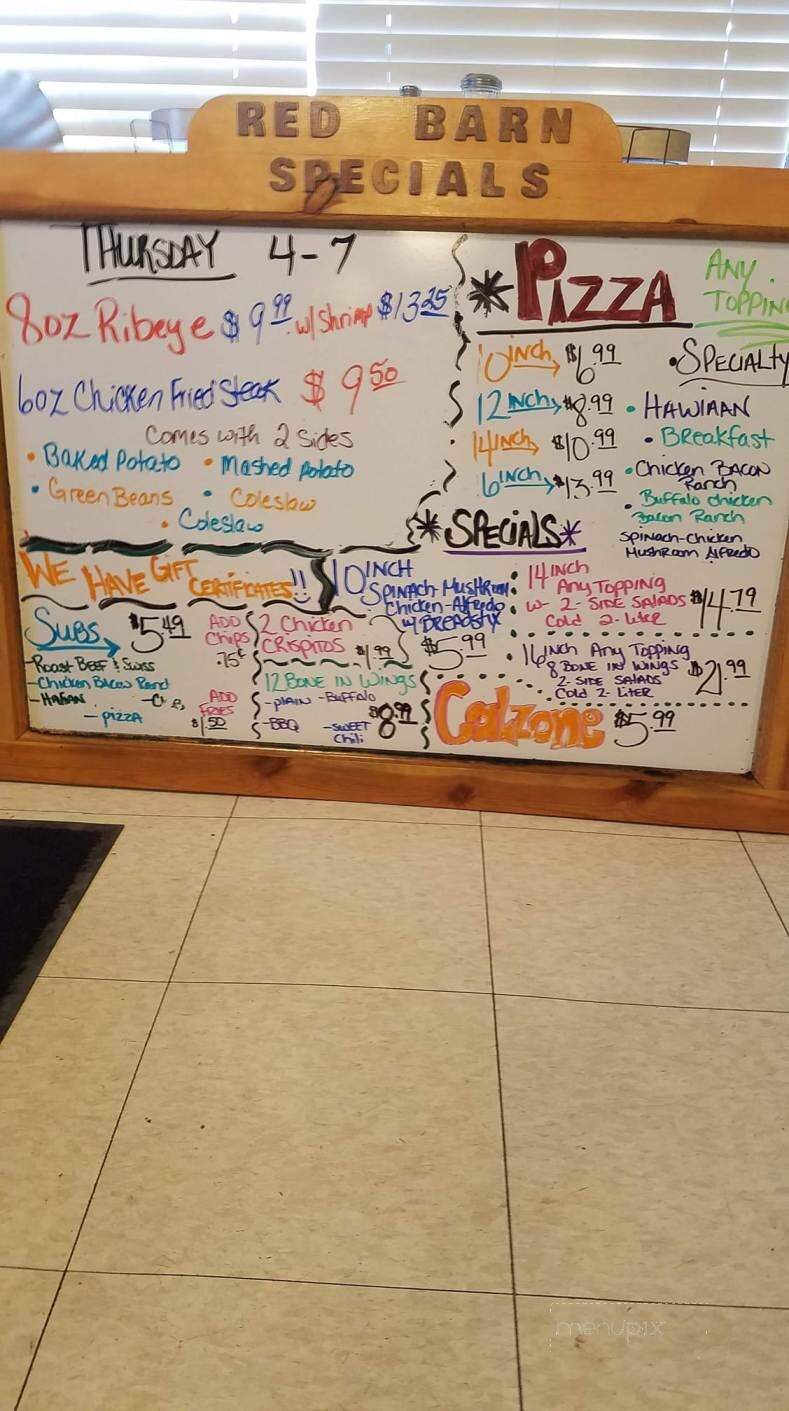 RED BARN
SPECIALS
THURSDAY 4-7
8oz Ribeye $9.99 w/ Shrimp $13.25
6oz Chicken Fried Steak $9.50
Comes with 2 Sides
• Baked Potato • Mashed potato
• Green Beans • Coleslaw
• Coleslaw
WE HAVE GIFT CERTIFICATES!!
Subs $5.49
ADD Chips .75¢
-Roast BEEF & Swiss
-Chicken Bacon Ranch
-Italian
-pizza
ADD FRIES
$1.50
2 Chicken
CRISPITOS $1.99
12 BONE IN WINGS
-plain -Buffalo
$8.99
-BBQ -SWEET
Chili
*PIZZA
ANY
TOPPING
10 inch $6.99
12 INCH $8.99
14 INCH $10.99
6 INCH $13.99
•SPECIALTY
• HAWIIAN
• Breakfast
• Chicken BACON
Ranch
• Buffalo Chicken
Bacon Ranch
Spinach-Chicken
MUSHROOM Alfredo
*SPECIALS*
10 INCH
SPINACH-MUSHROOM
Chicken-Alfredo
w/ BREADSTIX
$5.99
• 14 INCH
Any Topping
w- 2-SIDE SALADS
Cold 2-Liter
$14.79
• 16 INCH Any Topping
8 BONE IN WINGS
2-SIDE SALADS
Cold 2-LITER
$21.99
Calzone $5.99
menupix